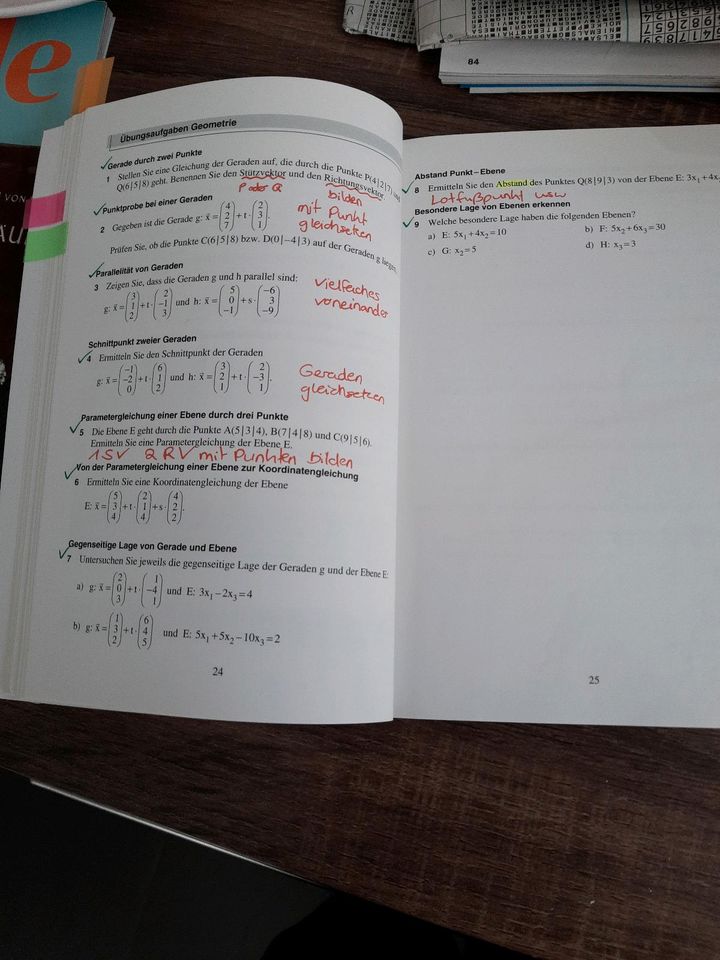 84
Übungsaufgaben Geometrie
Gerade durch zwei Punkte
1 Stellen Sie eine Gleichung der Geraden auf, die durch die Punkte P(4|2|7) und
Q(6|5|8) geht. Benennen Sie den Stützvektor und den Richtungsvektor.
P oder Q
bilden
Punktprobe bei einer Geraden
mit Punkt
gleichsetzen
2 Gegeben ist die Gerade g: x⃗ = (4 2 7) + t · (2 3 1).
Prüfen Sie, ob die Punkte C(6|5|8) bzw. D(0|−4|3) auf der Geraden g liegen.
Parallelität von Geraden
3 Zeigen Sie, dass die Geraden g und h parallel sind:
g: x⃗ = (3 1 2) + t · (2 −1 3) und h: x⃗ = (5 0 −1) + s · (−6 3 −9)
vielfaches
voneinander
Schnittpunkt zweier Geraden
4 Ermitteln Sie den Schnittpunkt der Geraden
g: x⃗ = (−1 −2 0) + t · (6 1 2) und h: x⃗ = (3 2 1) + t · (2 −3 1).
Geraden
gleichsetzen
Parametergleichung einer Ebene durch drei Punkte
5 Die Ebene E geht durch die Punkte A(5|3|4), B(7|4|8) und C(9|5|6).
Ermitteln Sie eine Parametergleichung der Ebene E.
1 SV 2 RV mit Punkten bilden
Von der Parametergleichung einer Ebene zur Koordinatengleichung
6 Ermitteln Sie eine Koordinatengleichung der Ebene
E: x⃗ = (5 3 4) + t · (2 1 4) + s · (4 2 2).
Gegenseitige Lage von Gerade und Ebene
7 Untersuchen Sie jeweils die gegenseitige Lage der Geraden g und der Ebene E:
a) g: x⃗ = (2 0 3) + t · (1 −4 1) und E: 3x₁ − 2x₃ = 4
b) g: x⃗ = (1 3 2) + t · (6 4 5) und E: 5x₁ + 5x₂ − 10x₃ = 2
24
Abstand Punkt – Ebene
8 Ermitteln Sie den Abstand des Punktes Q(8|9|3) von der Ebene E: 3x₁ + 4x
Lotfußpunkt usw
Besondere Lage von Ebenen erkennen
9 Welche besondere Lage haben die folgenden Ebenen?
a) E: 5x₁ + 4x₂ = 10 b) F: 5x₂ + 6x₃ = 30
c) G: x₂ = 5 d) H: x₃ = 3
25